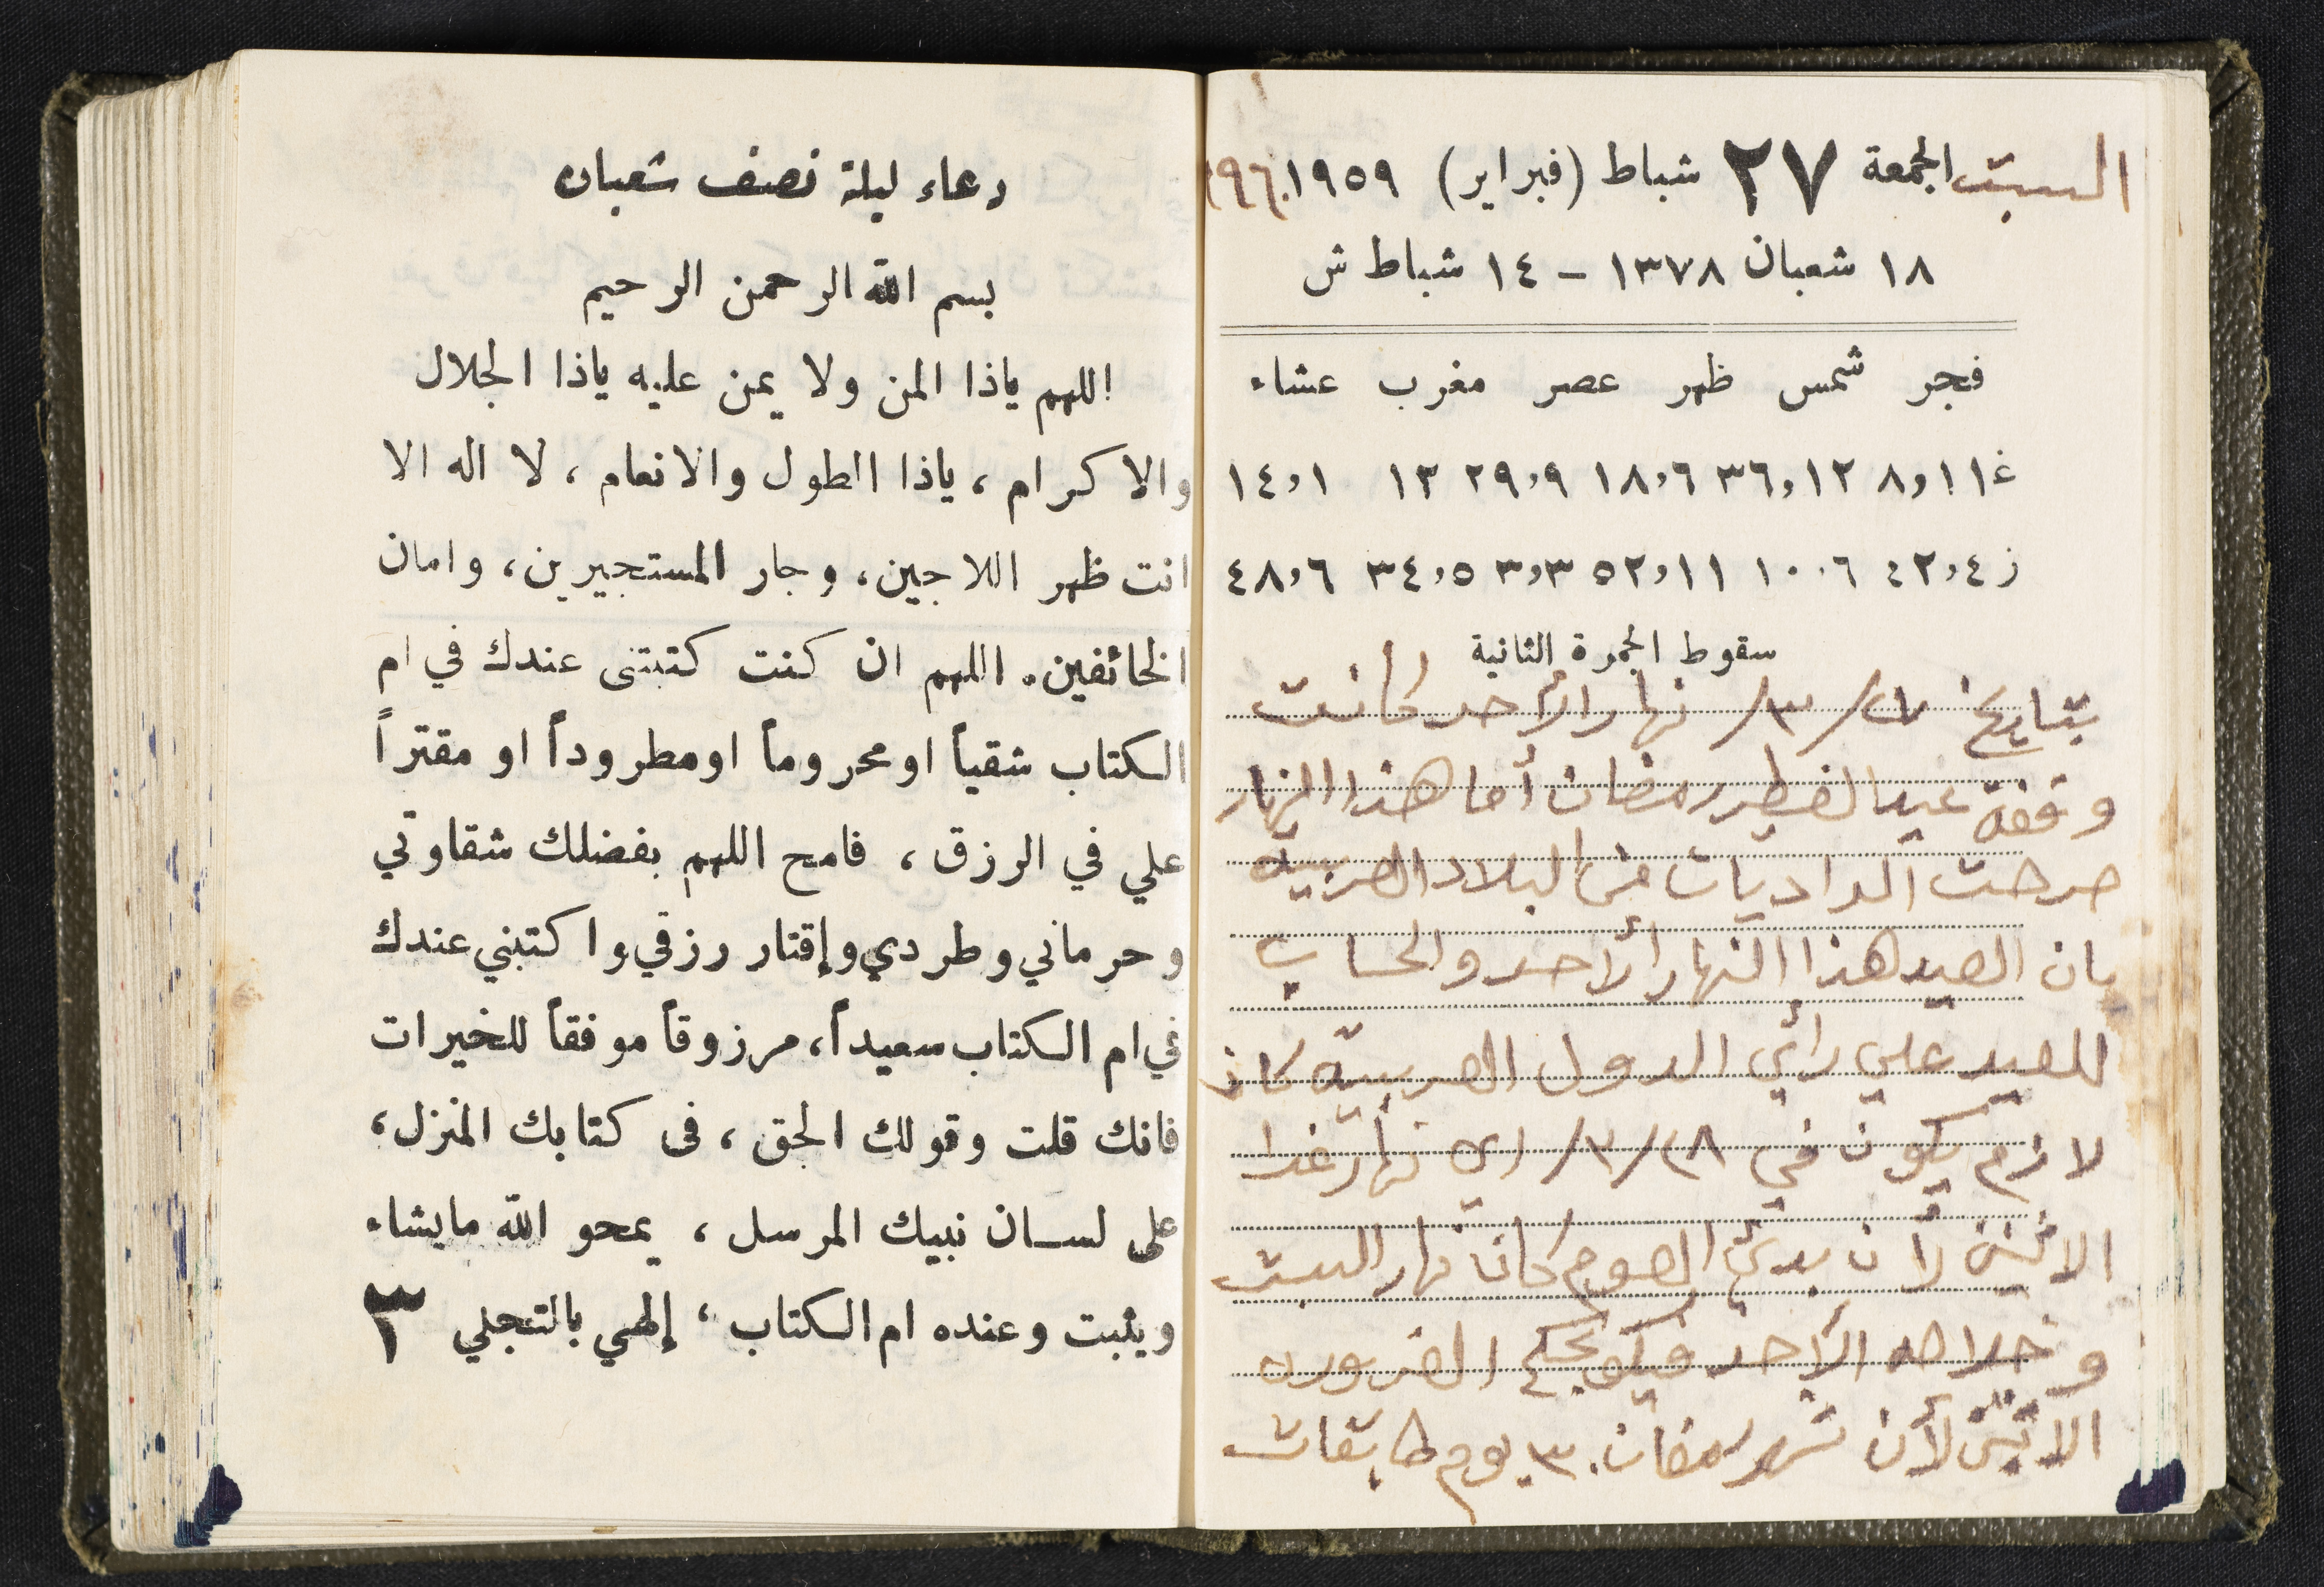 السبت الجمعة ٢٧ شباط (فبراير) ١٩٥٩ ١٩٦٠
١٨ شعبان ١٣٧٨ – ١٤ شباط ش
فجر شمس ظهر عصر مغرب عشاء
غ ١١,٨ ١٢,٣٦ ٦,١٨ ٩,٢٩ ١٢ ١,١٤
ز ٤,٤٢ ٦,١٠ ١١,٥٢ ٣,٣ ٥,٣٤ ٦,٤٨
سقوط الجمرة الثانية
بتاريخ ٢٧/٣/ نهار الأحد كانت
وقفة عيد الفطر رمضان أما هذا النهار
صرحت الراديات من البلاد العربية
بان العيد هذا النهار الأحد والحساب
للعيد علي رأي الدول العربية كان
لازم يكون في ٢٨/٣/ اي نهار غدا
الاثنين لأن بدئ الصوم كان نهار السبت
وخلاصه الأحد فيكون بحكم الضروره
الاثنين لأن شهر رمضان ٣٠ يوم
دعاء ليلة نصف شعبان
بسم الله الرحمن الرحيم
اللهم ياذا المن ولا يمن عليه ياذا الجلال
والاكرام ، ياذا الطول والانعام ، لا اله الا
انت ظهر اللاجين، وجار المستجيرين، وامان
الخائفين. اللهم ان كنت كتبتنى عندك في ام
الكتاب شقياً او محروماً او مطروداً او مقتراً
علي في الرزق ، فامح اللهم بفضلك شقاوتي
وحرماني وطردي وإقتار رزقي واكتبني عندك
في ام الكتاب سعيداً، مرزوقاً موفقاً للخيرات
فانك قلت وقولك الحق ، فى كتابك المنزل ،
على لسان نبيك المرسل ، يمحو الله مايشاء
ويثبت وعنده ام الكتاب ، إلهي بالتجلي ٣